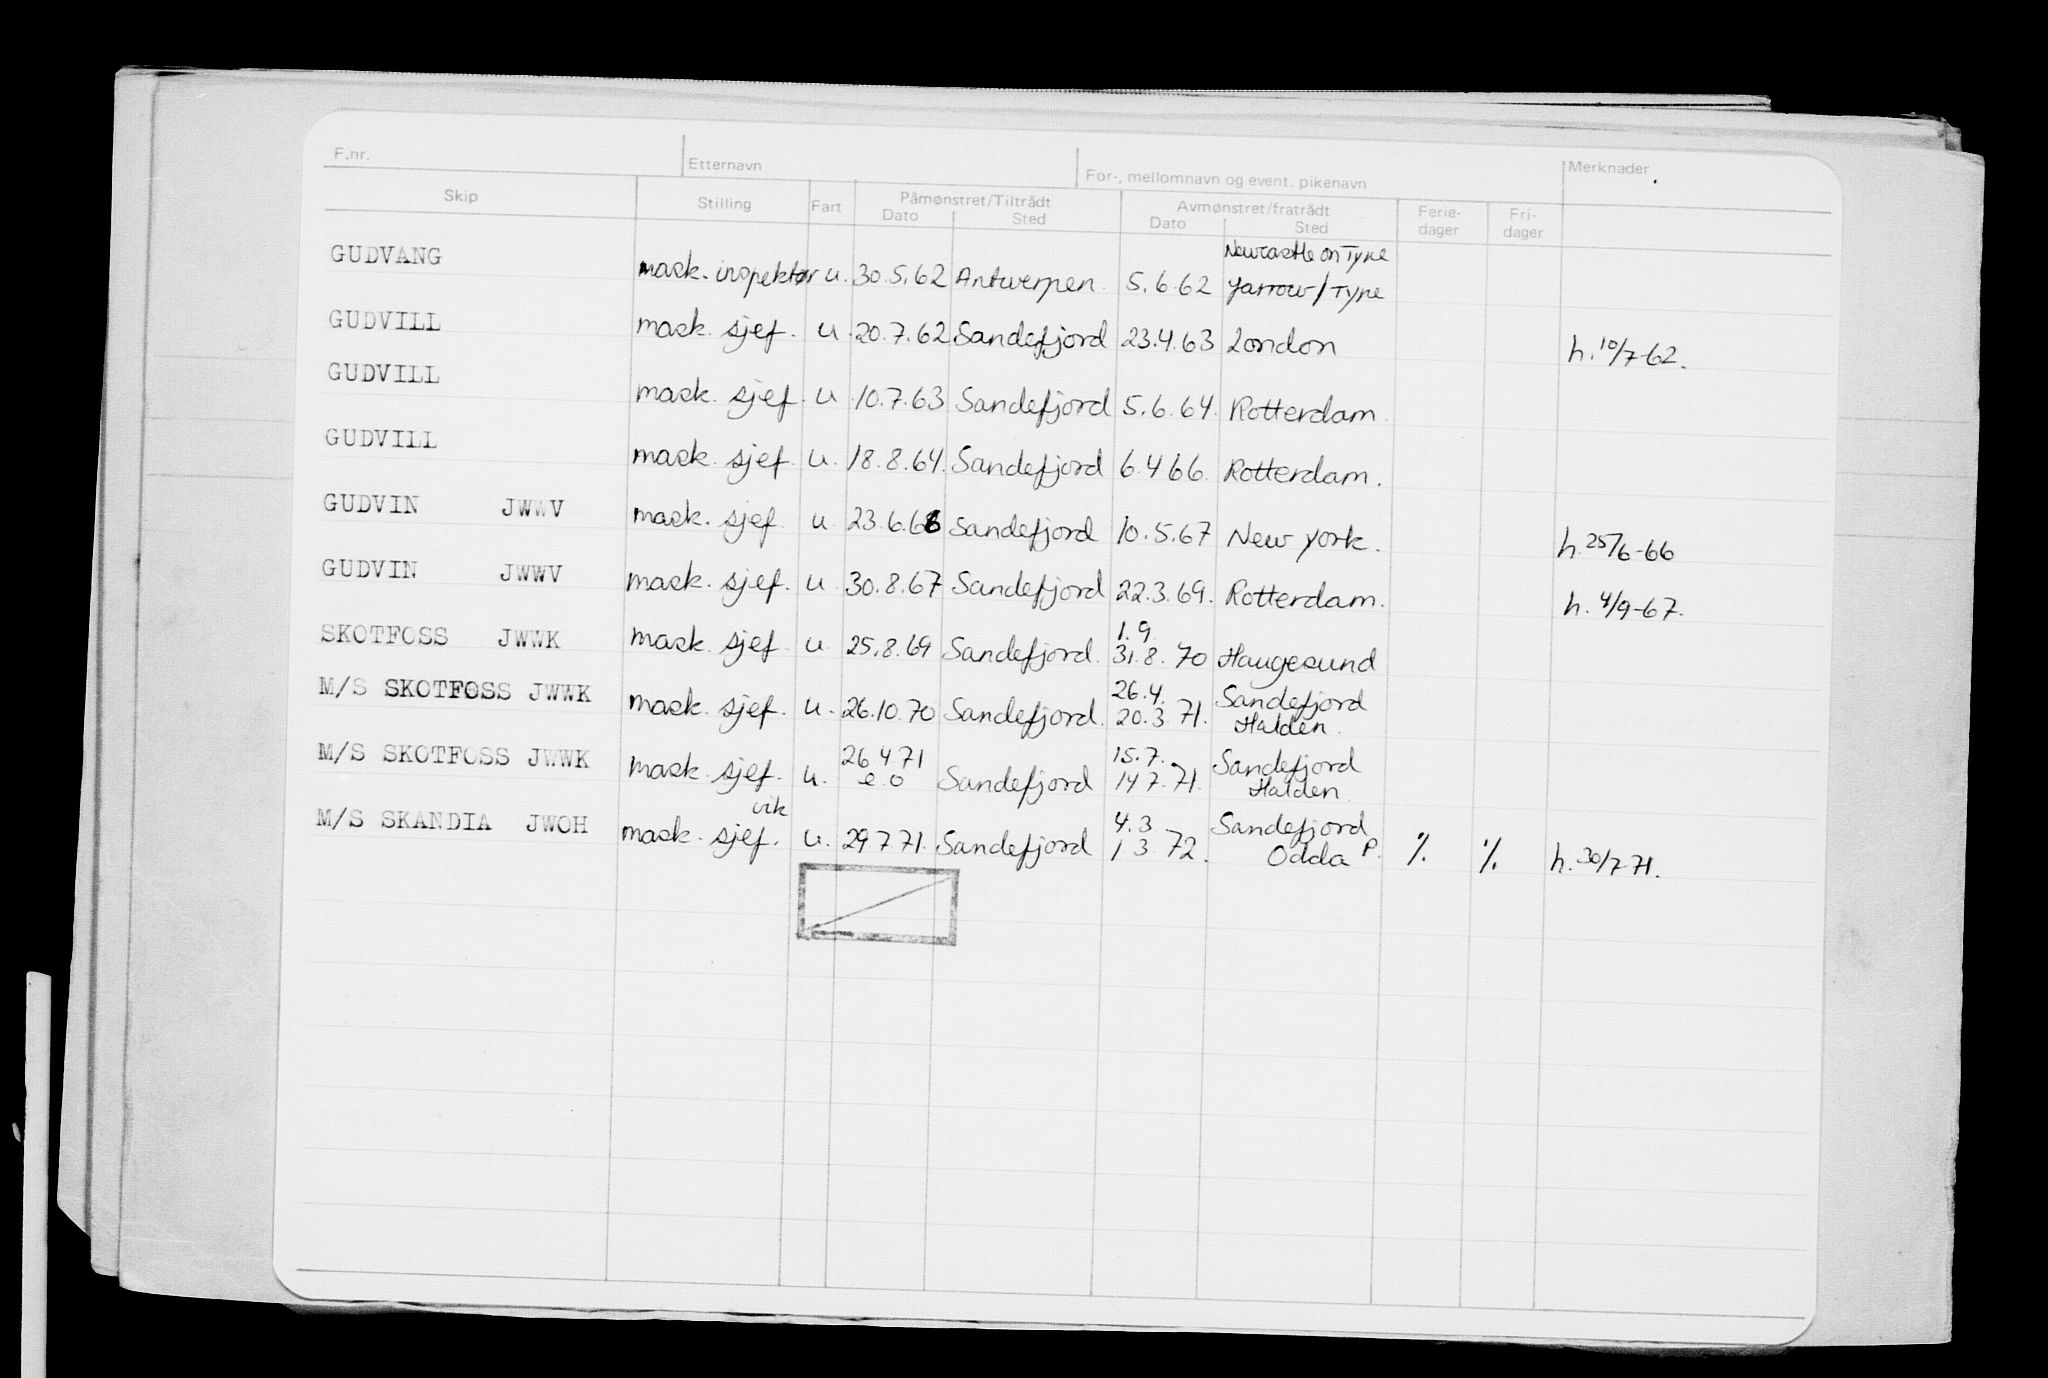 F.nr. Etternavn For-, mellomnavn og event. pikenavn Merknader
Skip Stilling Fart Påmønstret/Tiltrådt Avmønstret/fratrådt Ferie- Fri-
Dato Sted Dato Sted dager dager
Newcastle on Tyne
GUDVANG mask. inspektør u. 30.5.62 Antwerpen. 5.6.62 Yarrow/Tyne
GUDVILL mask. sjef. u. 20.7.62 Sandefjord 23.4.63 London h. 10/7-62.
GUDVILL mask. sjef. u. 10.7.63 Sandefjord 5.6.64. Rotterdam.
GUDVILL mask. sjef. u. 18.8.64. Sandefjord 6.4 66. Rotterdam.
GUDVIN JWWV mask. sjef. u. 23.6.66 Sandefjord 10.5.67 New York. h. 25/6-66
GUDVIN JWWV mask. sjef. u. 30.8.67 Sandefjord 22.3.69. Rotterdam. h. 4/9-67.
1.9.
SKOTFOSS JWWK mask. sjef u. 25.8.69 Sandefjord. 31.8. 70 Haugesund
26.4. Sandefjord
M/S SKOTFOSS JWWK mask. sjef. u. 26.10.70 Sandefjord. 20.3.71. Halden.
26 4 71 15.7. Sandefjord
M/S SKOTFOSS JWWK mask. sjef. u. e.o Sandefjord 14 7. 71. Halden.
vik 4.3 Sandefjord
M/S SKANDIA JWOH mask. sjef. u. 29 7 71. Sandefjord 1 3 72. Odda P. % % h. 30/7 71.